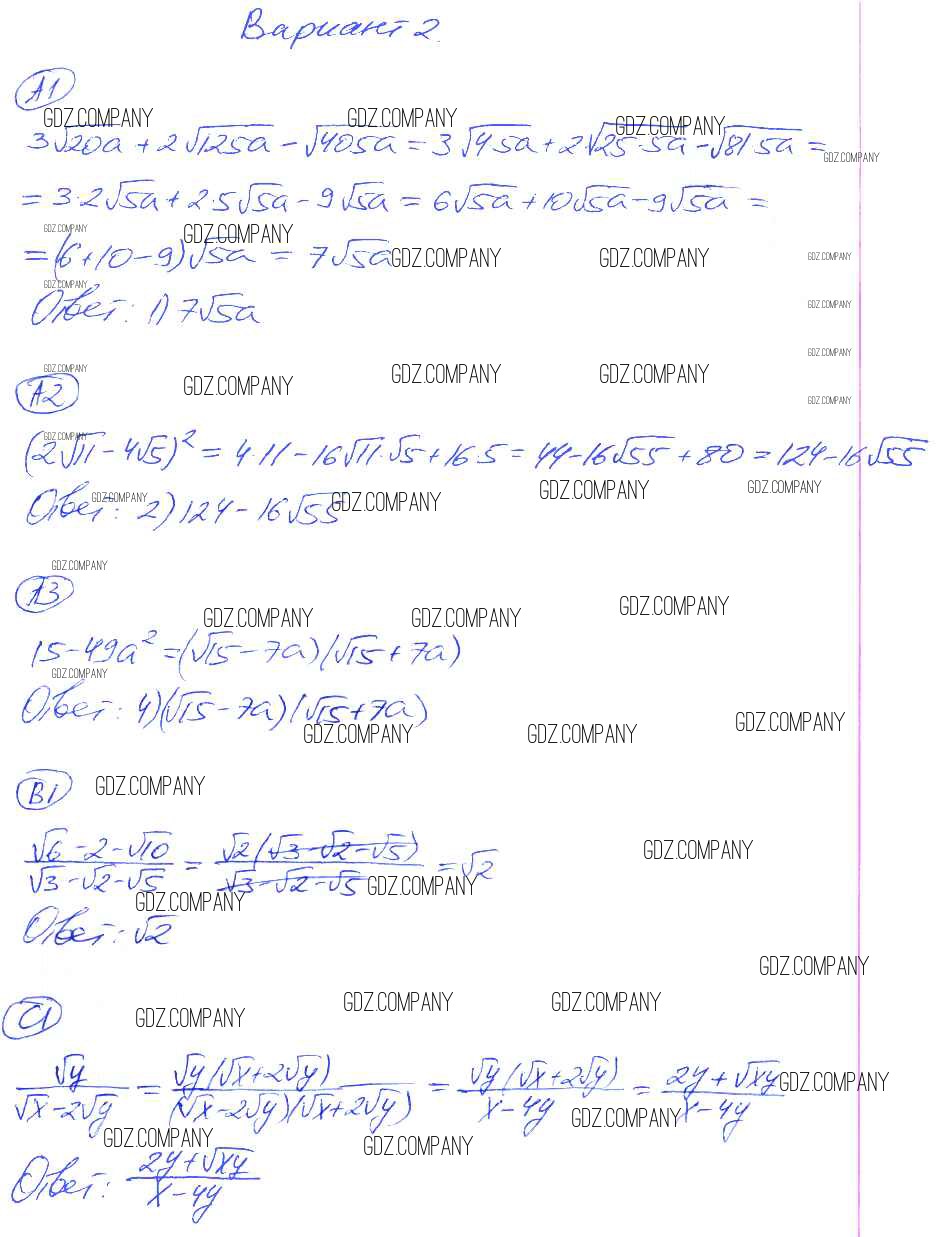 Вариант 2.
А1
GDZ.COMPANY GDZ.COMPANY GDZ.COMPANY
3√20a + 2√125a - √405a = 3√4·5a + 2√25·5a - √81·5a =
GDZ.COMPANY
= 3·2√5a + 2·5√5a - 9√5a = 6√5a + 10√5a - 9√5a =
GDZ.COMPANY GDZ.COMPANY
= (6+10-9)√5a = 7√5a GDZ.COMPANY GDZ.COMPANY GDZ.COMPANY
GDZ.COMPANY
Ответ: 1) 7√5a GDZ.COMPANY
GDZ.COMPANY
GDZ.COMPANY GDZ.COMPANY GDZ.COMPANY
А2 GDZ.COMPANY GDZ.COMPANY
GDZ.COMPANY
(2√11 - 4√5)² = 4·11 - 16√11·√5 + 16·5 = 44 - 16√55 + 80 = 124 - 16√55
GDZ.COMPANY GDZ.COMPANY GDZ.COMPANY GDZ.COMPANY
Ответ: 2) 124 - 16√55
GDZ.COMPANY
А3
GDZ.COMPANY GDZ.COMPANY GDZ.COMPANY
15 - 49a² = (√15 - 7a)(√15 + 7a)
GDZ.COMPANY
Ответ: 4) (√15 - 7a)(√15 + 7a)
GDZ.COMPANY GDZ.COMPANY GDZ.COMPANY
В1 GDZ.COMPANY
(√6 - 2 - √10)/(√3 - √2 - √5) = √2(√3 - √2 - √5)/(√3 - √2 - √5) = √2
GDZ.COMPANY
GDZ.COMPANY GDZ.COMPANY
Ответ: √2
GDZ.COMPANY
С1 GDZ.COMPANY GDZ.COMPANY GDZ.COMPANY
√y/(√x - 2√y) = √y(√x + 2√y)/((√x - 2√y)(√x + 2√y)) = √y(√x + 2√y)/(x - 4y) = (2y + √xy)/(x - 4y)
GDZ.COMPANY GDZ.COMPANY
GDZ.COMPANY GDZ.COMPANY
Ответ: (2y + √xy)/(x - 4y)